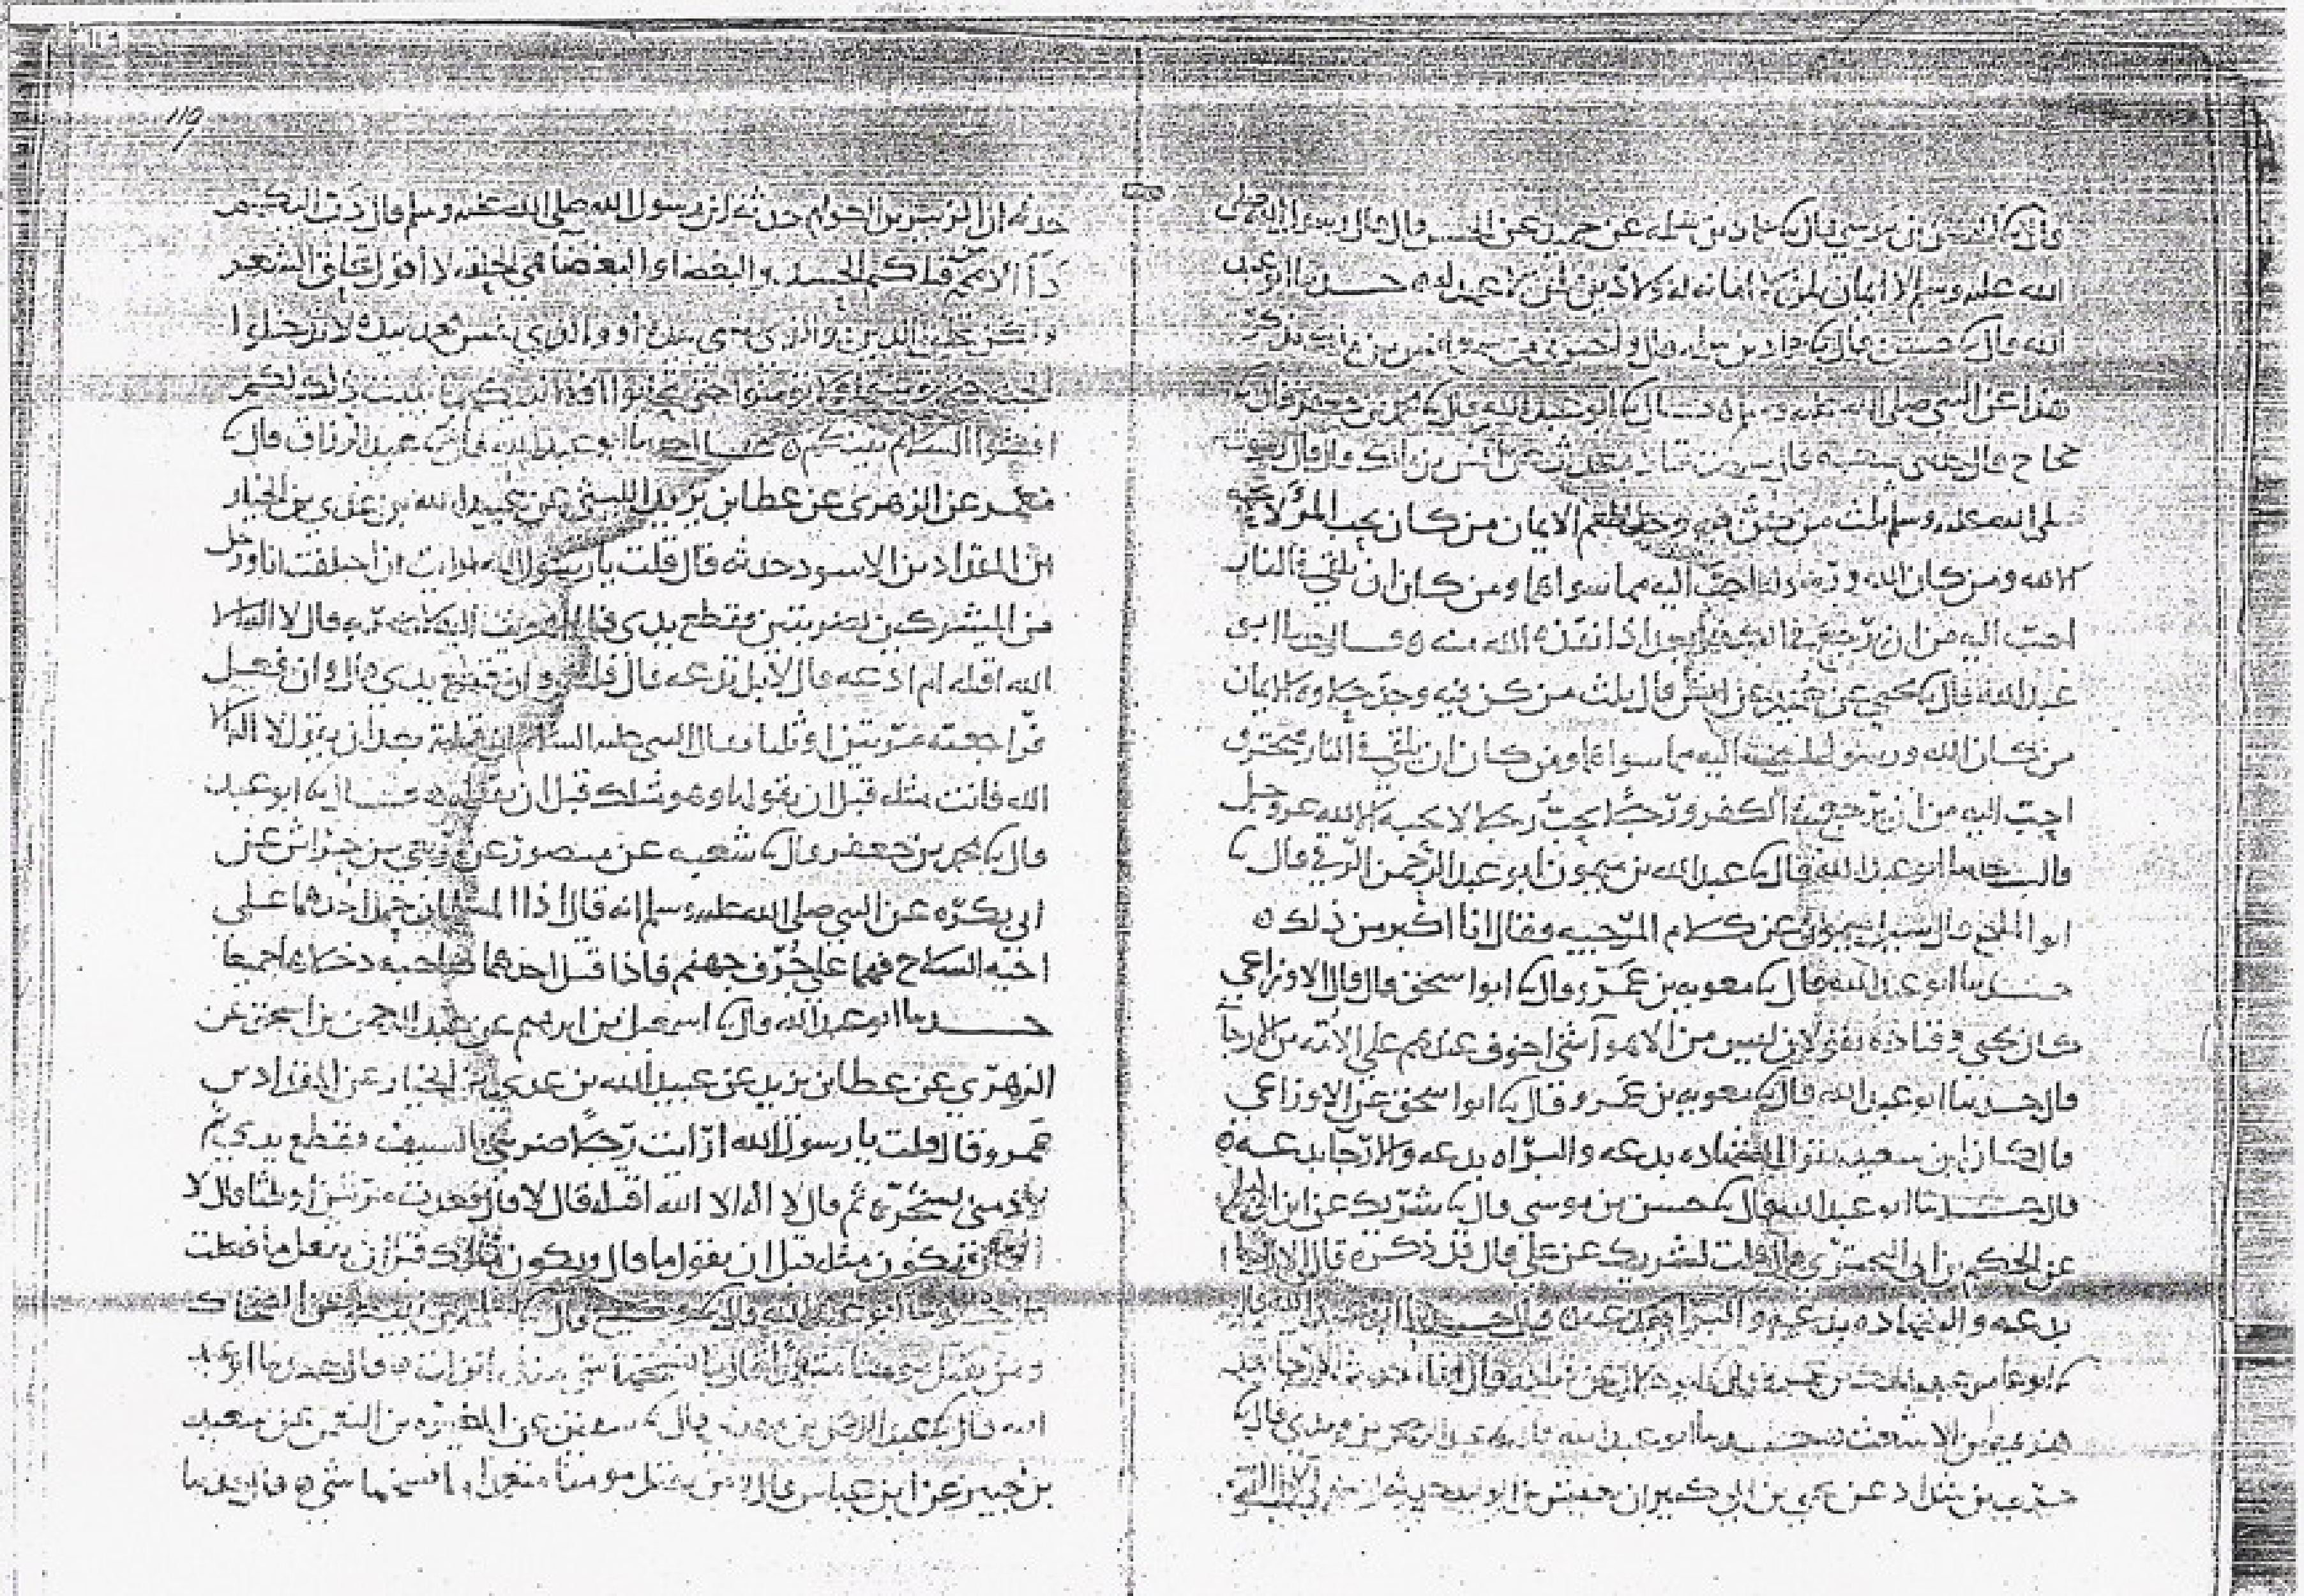 قال حسن بن موسى قال حماد بن سلمه عن حميد عن الحسن قال قال رسول الله صلى
الله عليه وسلم لا ايمان لمن لا امانه له ولا دين لمن لا عهد له حدثنا ابو عبد
الله قال حسن قال حماد بن سلمه
هذا عن النبي صلى الله عليه وسلم قال ابو عبد الله قال محمد بن جعفر قال
حجاج قال حدثني شعبه قال سمعت قتاده يحدث عن انس بن مالك قال قال رسول
صلى الله عليه وسلم ثلث من كن فيه وجد طعم الايمان من كان يحب المرء لا يحبه
الا لله ومن كان الله ورسوله احب اليه مما سواهما ومن كان ان يلقى في النار
احب اليه من ان يرجع في الكفر بعد اذ انقذه الله منه حدثنا ابو
عبد الله قال يحيى عن حميد عن انس قال ثلث من كن فيه وجد حلاوه الايمان
من كان الله ورسوله احب اليه مما سواهما ومن كان ان يلقى في النار فيحترق
احب اليه من ان يرجع في الكفر ورجلا يحب رجلا لا يحبه الا لله عز وجل
قال حدثنا ابو عبد الله قال عبد الله بن ميمون ابو عبد الرحمن الرقي قال
ابو المليح قال سئل ميمون عن كلام المرجيه فقال انا اكبر من ذلك ه
حدثنا ابو عبد الله قال معويه بن عمرو قال ابو اسحق قال قال الاوزاعي
كان يحيى وقتاده يقولان ليس من الاهوا شي اخوف عندهم على الامه من الارجا
قال حدثنا ابو عبد الله قال معويه بن عمرو قال ابو اسحق عن الاوزاعي
قال كان ابن سعيد يقول الشهاده بدعه والبراه بدعه والارجا بدعه ه
قال حدثنا ابو عبد الله قال حسن بن موسى قال شريك عن ابن ابي ليلى
عن الحكم بن ابي البحتري قال قلت لشريك عن علي قال قد ذكره قال الارجا
بدعه والشهاده بدعه والبراه بدعه قال حدثنا ابو عبد الله قال
ابو عامر عبد الملك بن عن قتاده قال انما احدث الارجا بعد
هزيمه ابن الاشعث حدثنا ابو عبد الله قال عبد الرحمن بن مهدي قال
حرب بن شداد عن يحيى بن ابي كثير ان يعيش بن الوليد حدثه ان مولى لال الزبير
حدثه ان الزبير بن العوام حدثه ان رسول الله صلى الله عليه وسلم قال دب اليكم
دآ الامم قبلكم الحسد والبغضاء والبغضا هي الحالقه لا اقول تحلق الشعر
ولكن تحلق الدين والذي نفسي بيده او والذي نفس محمد بيده لا تدخلوا
الجنه حتى تومنوا ولا تومنوا حتى تحابوا افلا انبيكم بما يثبت ذلك لكم
افشوا السلام بينكم ه حدثنا ابو عبد الله قال عبد الرزاق قال
معمر عن الزهرى عن عطا بن يزيد الليثي عن عبيد الله بن عدي بن الخيار
ان المقداد بن الاسود حدثه قال قلت يا رسول الله ارايت ان اختلفت انا ورجل
من المشركين ضربتين فقطع يدى فلما اهويت اليه لاضربه قال لا اله الا
الله اقتله ام ادعه قال لا بل تدعه قال قلت وان قطع يدي قال وان فعل
فراجعته مرتين او ثلثا فقال النبي عليه السلام ان قتلته بعد ان يقول لا اله الا
الله فانت مثله قبل ان يقولها وهو مثلك قبل ان تقتله ه قال ابو عبد
قال محمد بن جعفر قال شعبه عن منصور عن ربعي بن حراش عن
ابي بكره عن النبي صلى الله عليه وسلم انه قال اذا المسلمان حمل احدهما على
اخيه السلاح فهما على جُرُف جهنم فاذا قتل احدهما صاحبه دخلاها جميعا
حدثنا ابو عبد الله قال اسمعيل بن ابرهيم عن عبد الرحمن بن اسحق عن
الزهري عن عطا بن يزيد عن عبيد الله بن عدي بن الخيار عن المقداد بن
عمرو قال قلت يا رسول الله ارايت رجلا ضربني بالسيف فقطع يدي ثم
لاذ مني بشجره ثم قال لا اله الا الله اقتله قال لا قال فعدت مرتين او ثلثا قال لا
فتكون مثله قبل ان يقول ما قال ويكون مثلك قبل ان يفعل ما فعلت
قال حدثنا ابو عبد الله قال وكيع قال سلمه بن نبيط عن الضحاك
ومن يقتل مومنا متعمدا قال ما نسخها شي منذ نزلت ه قال حدثنا ابو عبد
الله قال عبد الرحمن بن مهدي قال سفين عن المغيره بن النعمن عن سعيد
بن جبير عن ابن عباس قال ومن يقتل مومنا متعمدا ما نسخها شي ه قال حدثنا
١١٩